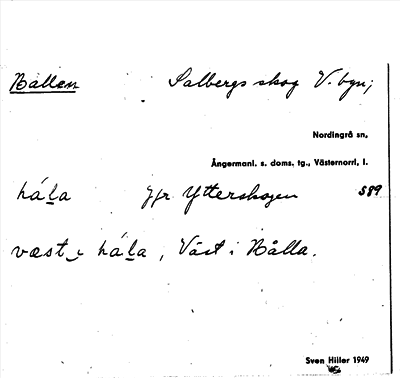 Bållen Salbergs skog V. byn;
Nordingrå sn,
Ångermanl. s. doms. tg., Västernorrl. l.
bála jfr Ytterskogen S89
væst i bála, Väst i Bålla.
Sven Hiller 1949